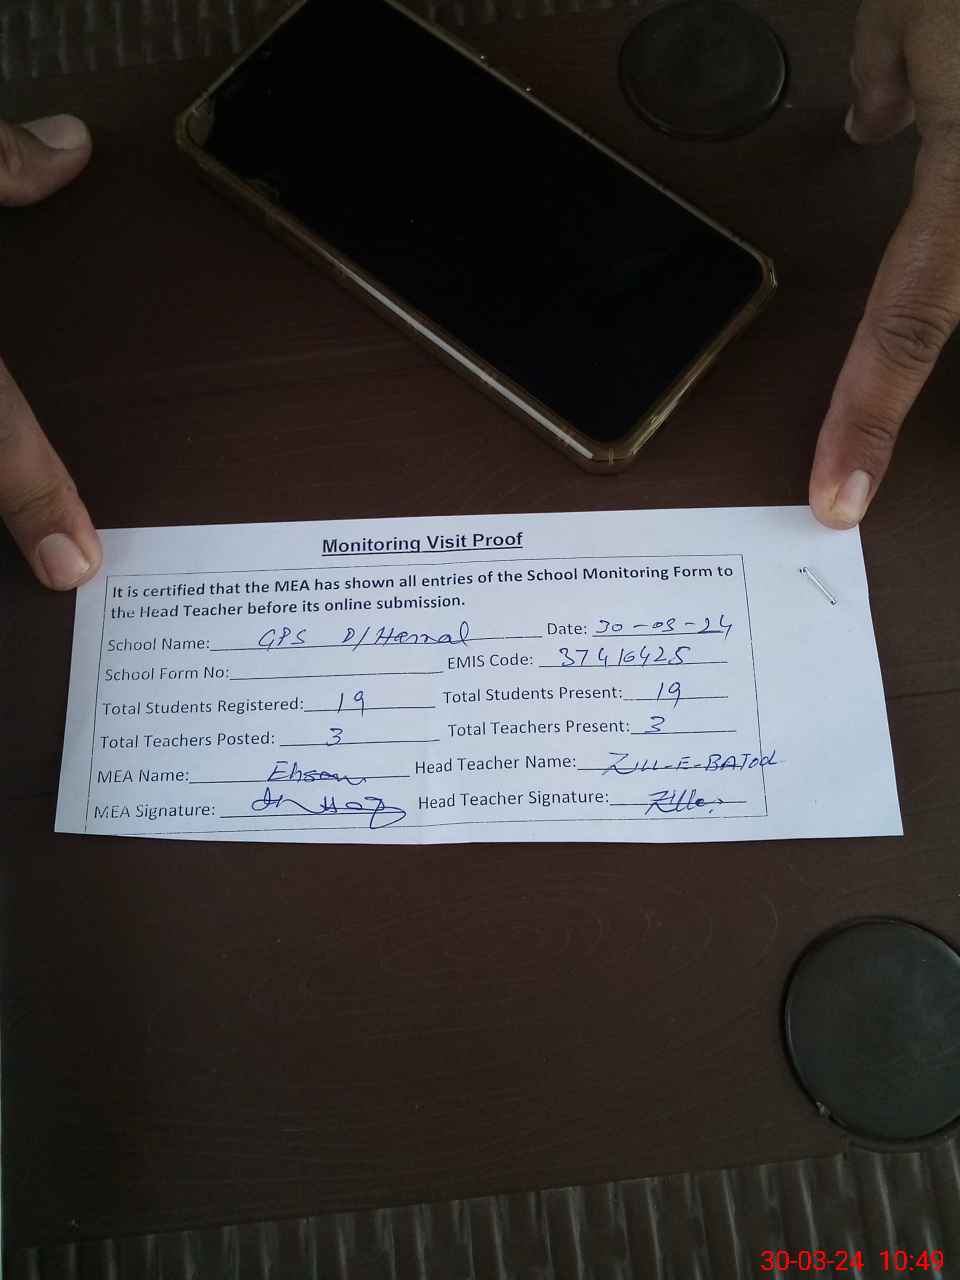 Monitoring Visit Proof
It is certified that the MEA has shown all entries of the School Monitoring Form to
the Head Teacher before its online submission.
School Name: GPS D/Hamal Date: 30-03-24
School Form No: EMIS Code: 37416425
Total Students Registered: 19 Total Students Present: 19
Total Teachers Posted: 3 Total Teachers Present: 3
MEA Name: Ehsan Head Teacher Name: ZILL-E-BATOOL
MEA Signature: Head Teacher Signature: Zille
30-03-24 10:49